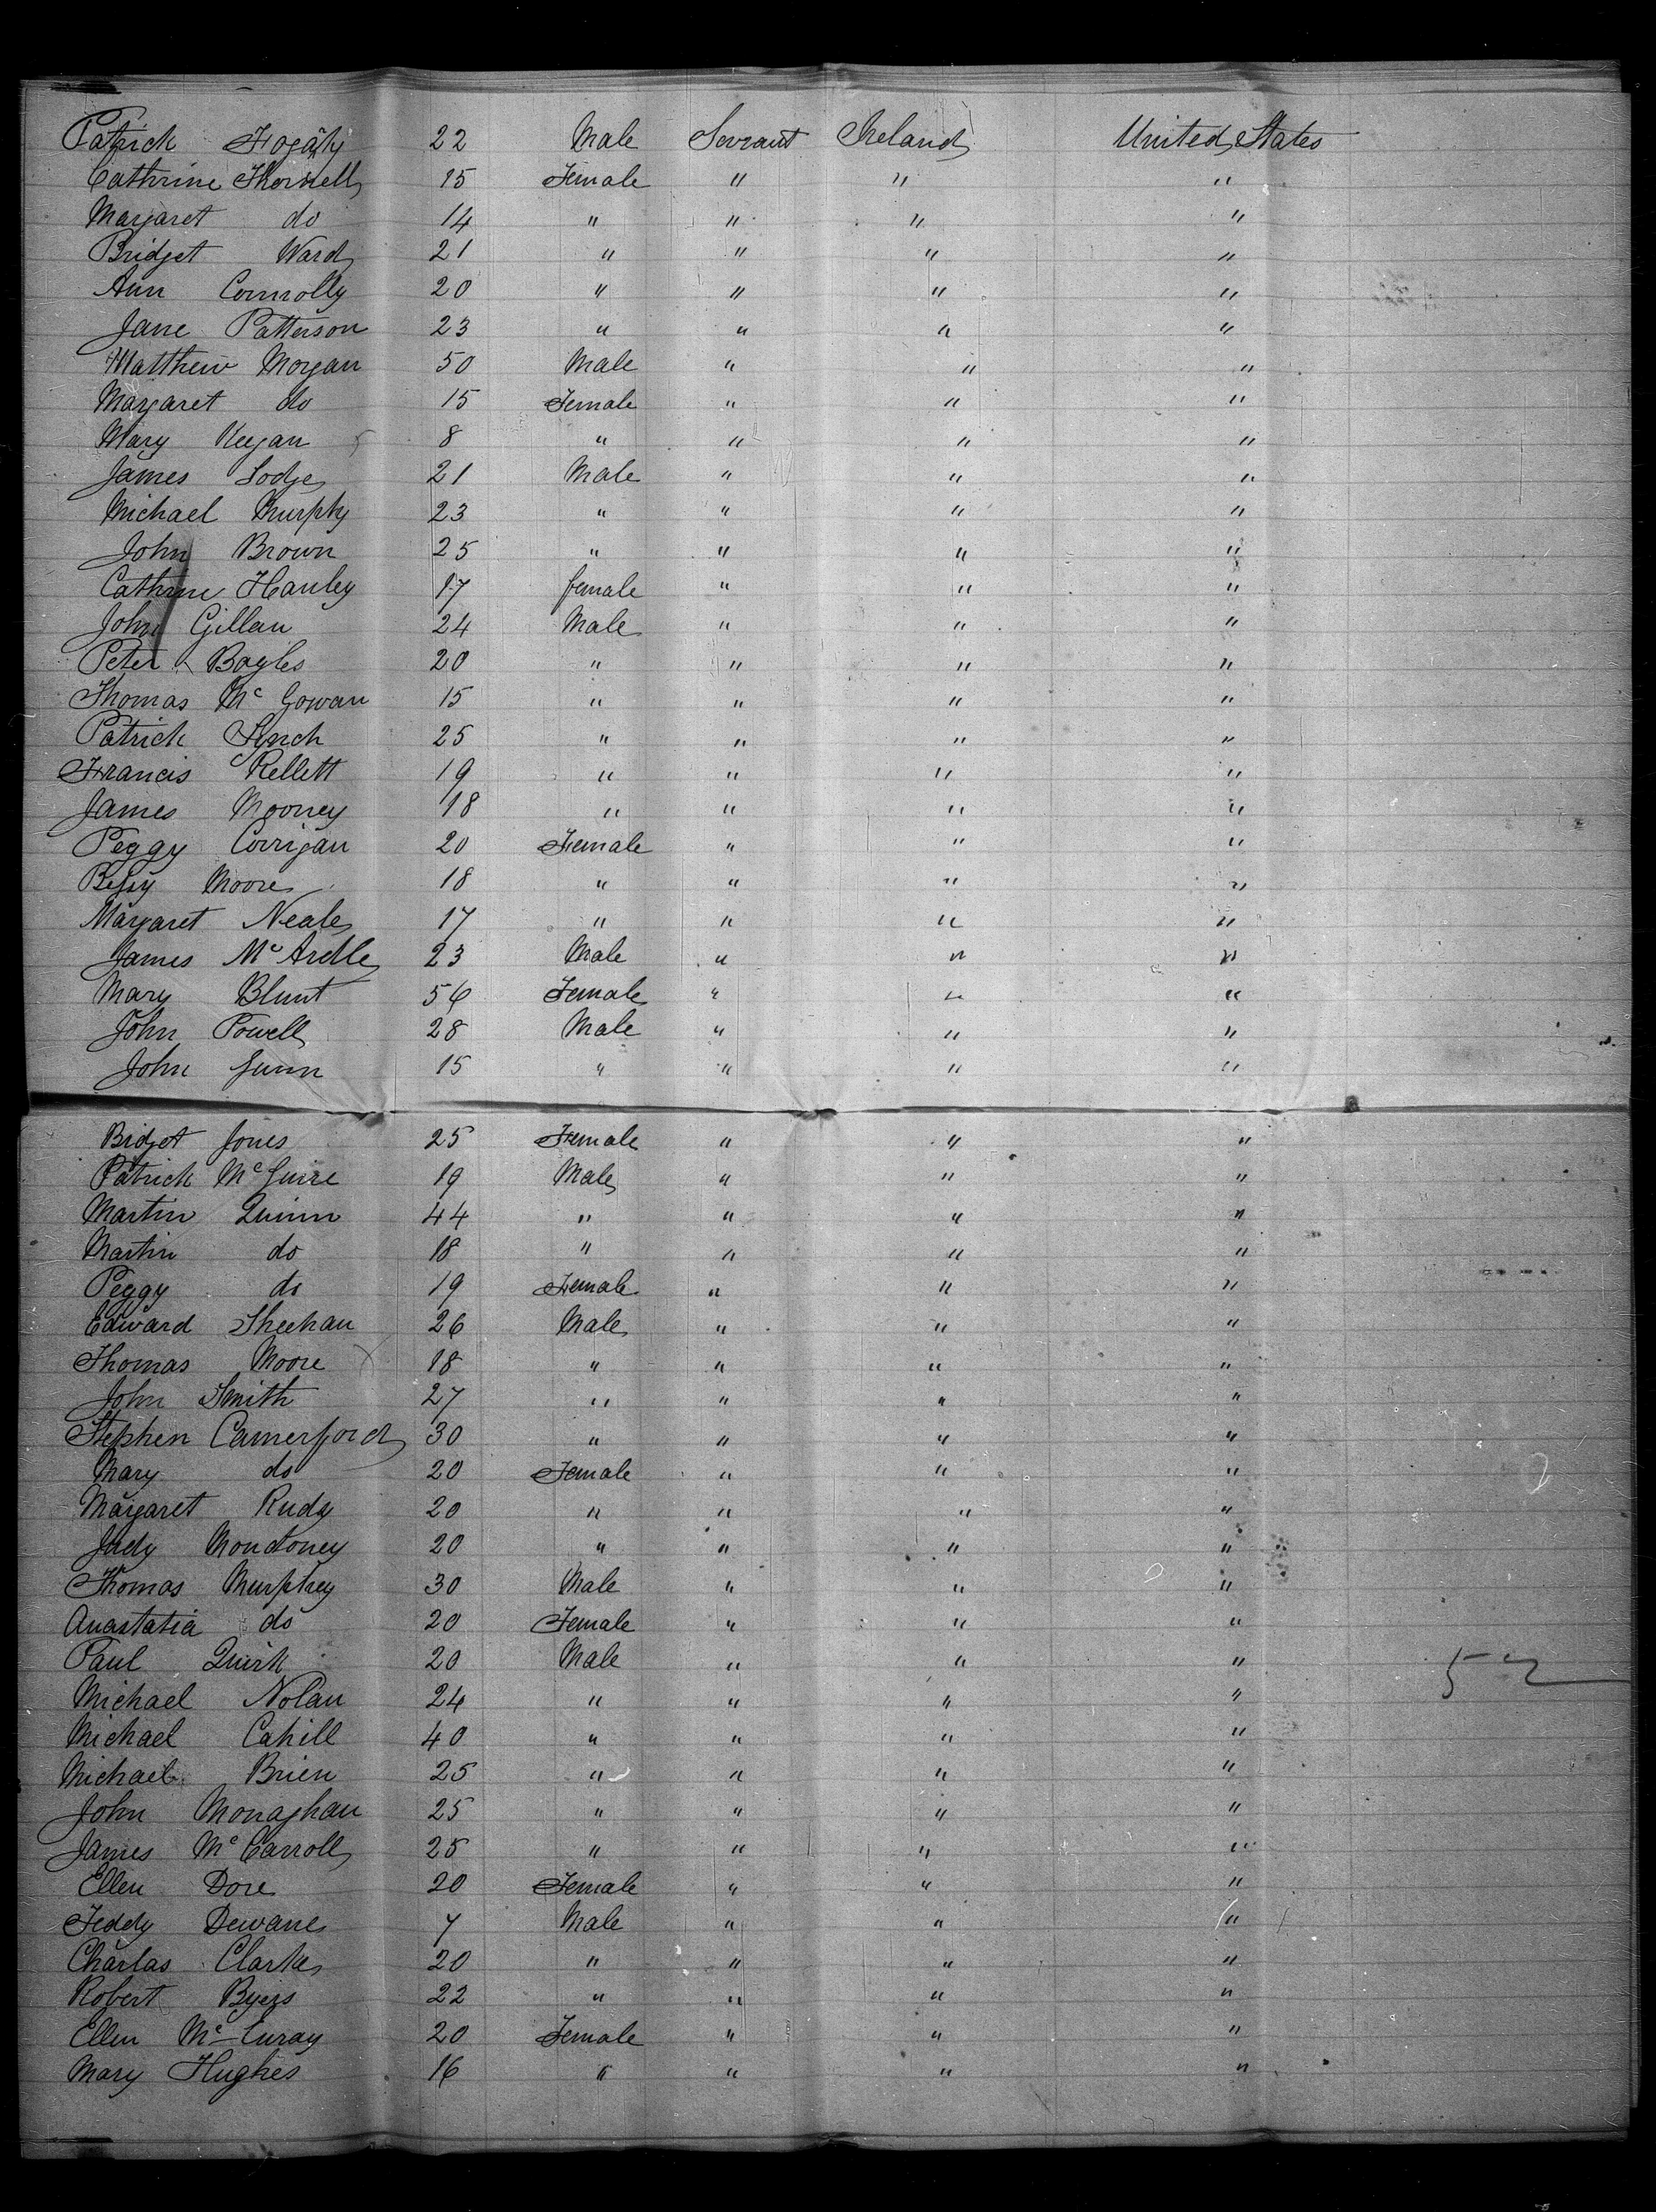 Patrick Fogarty 22 Male Servant Ireland United States
Cathrine Thornell 15 Female " " "
Margaret do 14 " " " "
Bridget Ward 21 " " " "
Ann Connolly 20 " " " "
Jane Patterson 23 " " " "
Matthew Morgan 50 Male " " "
Margaret do 15 Female " " "
Mary Keegan 8 " " " "
James Lodge 21 Male " " "
Michael Murphy 23 " " " "
John Brown 25 " " " "
Cathrine Hanley 17 female " " "
John Gillan 24 Male " " "
Peter Bayles 20 " " " "
Thomas Mc Gowan 15 " " " "
Patrick Lynch 25 " " " "
Francis Kellett 19 " " " "
James Mooney 18 " " " "
Peggy Corrigan 20 Female " " "
Betsy Moore 18 " " " "
Margaret Neale 17 " " " "
James Mc Ardle 23 Male " " "
Mary Blunt 56 Female " " "
John Powell 28 Male " " "
John Gunn 15 " " " "
Bidget Jones 25 Female " " "
Patrick Mc Guire 19 Male " " "
Martin Quinn 44 " " " "
Martin do 18 " " " "
Peggy do 19 Female " " "
Edward Sheehan 26 Male " " "
Thomas Moore 18 " " " "
John Smith 27 " " " "
Stephen Camerford 30 " " " "
Mary do 20 Female " " "
Margaret Rudy 20 " " " "
Judy 20 " " " "
Thomas Murphey 30 Male " " "
Anastatia do 20 Female " " "
Paul Quirk 20 Male " " " 52
Michael Nolan 24 " " " "
Michael Cahill 40 " " " "
Michael Brien 25 " " " "
John Monaghan 25 " " " "
James Mc Carroll 25 " " " "
Ellen Dore 20 Female " " "
Teddy Dewane 7 Male " " "
Charlas Clarke 20 " " " "
Robert Byers 22 " " " "
Ellen 20 Female " " "
Mary Hughes 16 " " " "